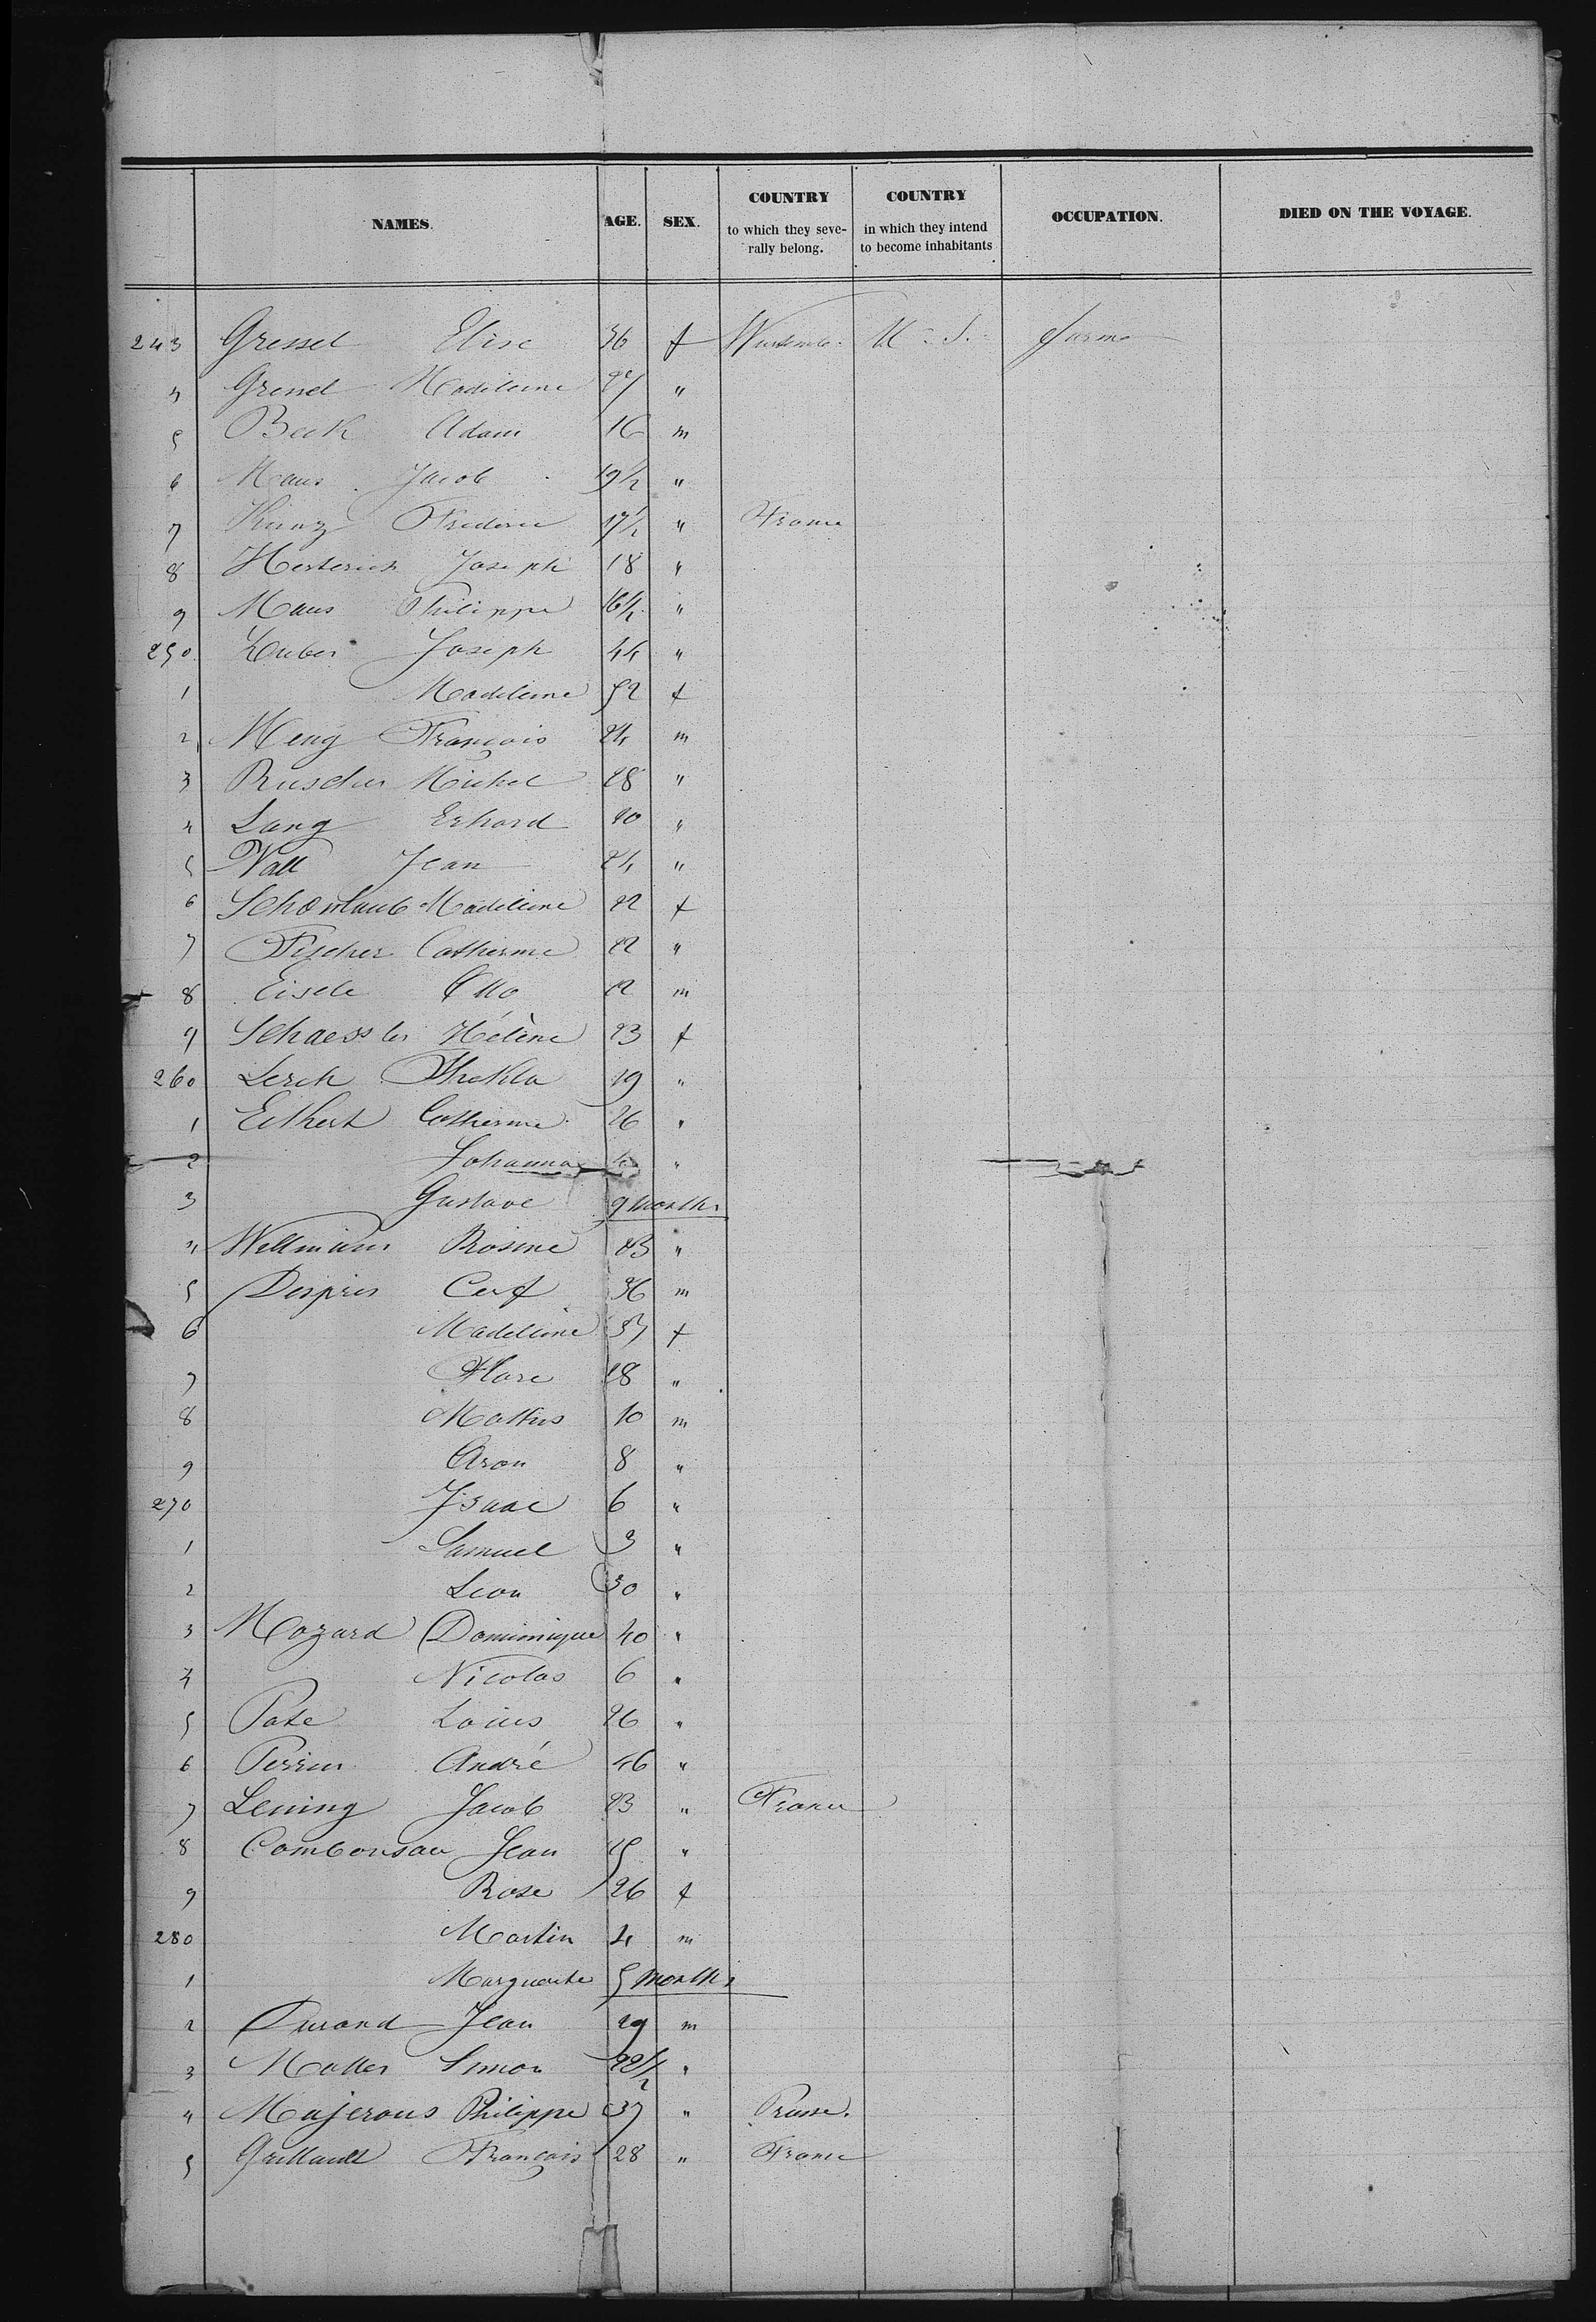 NAMES. AGE. SEX. COUNTRY to which they severally belong. COUNTRY in which they intend to become inhabitants OCCUPATION. DIED ON THE VOYAGE.
243 Gressel Elise 36 f Wurtemb. U. S. farmer
4 Gressel Madeleine 27 "
5 Beck Adam 16 m
6 Maus Jacob 19 1/2 "
7 Kunz Frederic 17 1/2 " France
8 Herterich Joseph 18 "
9 Maus Philippe 16 1/2 "
250 Huber Joseph 44 "
1 Madeleine 52 f
2 Meng François 24 m
3 Ruscher Michel 28 "
4 Lang Erhard 20 "
5 Nall Jean 24 "
6 Schomlaub Madeleine 22 f
7 Fischer Catherine 22 "
8 Eisele Otto 22 m
9 Schaessler Hélène 23 f
260 Lerch Thekla 19 "
1 Eckhert Catherine 26 "
2 Johanna "
3 Gustave 9 months
4 Wellmann Rosine 23 "
5 Despres Cerf 36 m
6 Madeleine 37 f
7 Flore 28 "
8 Mathis 10 m
9 Aron 8 "
270 Isaac 6 "
1 Samuel 3 "
2 Leon 30 "
3 Mozard Dominique 40 "
4 Nicolas 6 "
5 Pate Louis 26 "
6 Perrin André 46 "
7 Lening Jacob 23 " France
8 Combousau Jean "
9 Rose 26 f
280 Martin 4 m
1 Marguerite 5 months
2 Durand Jean 29 m
3 Matter Simon 22 1/2 "
4 Majerous Philippe 37 " Prusse.
5 Gaillardt François 28 " France